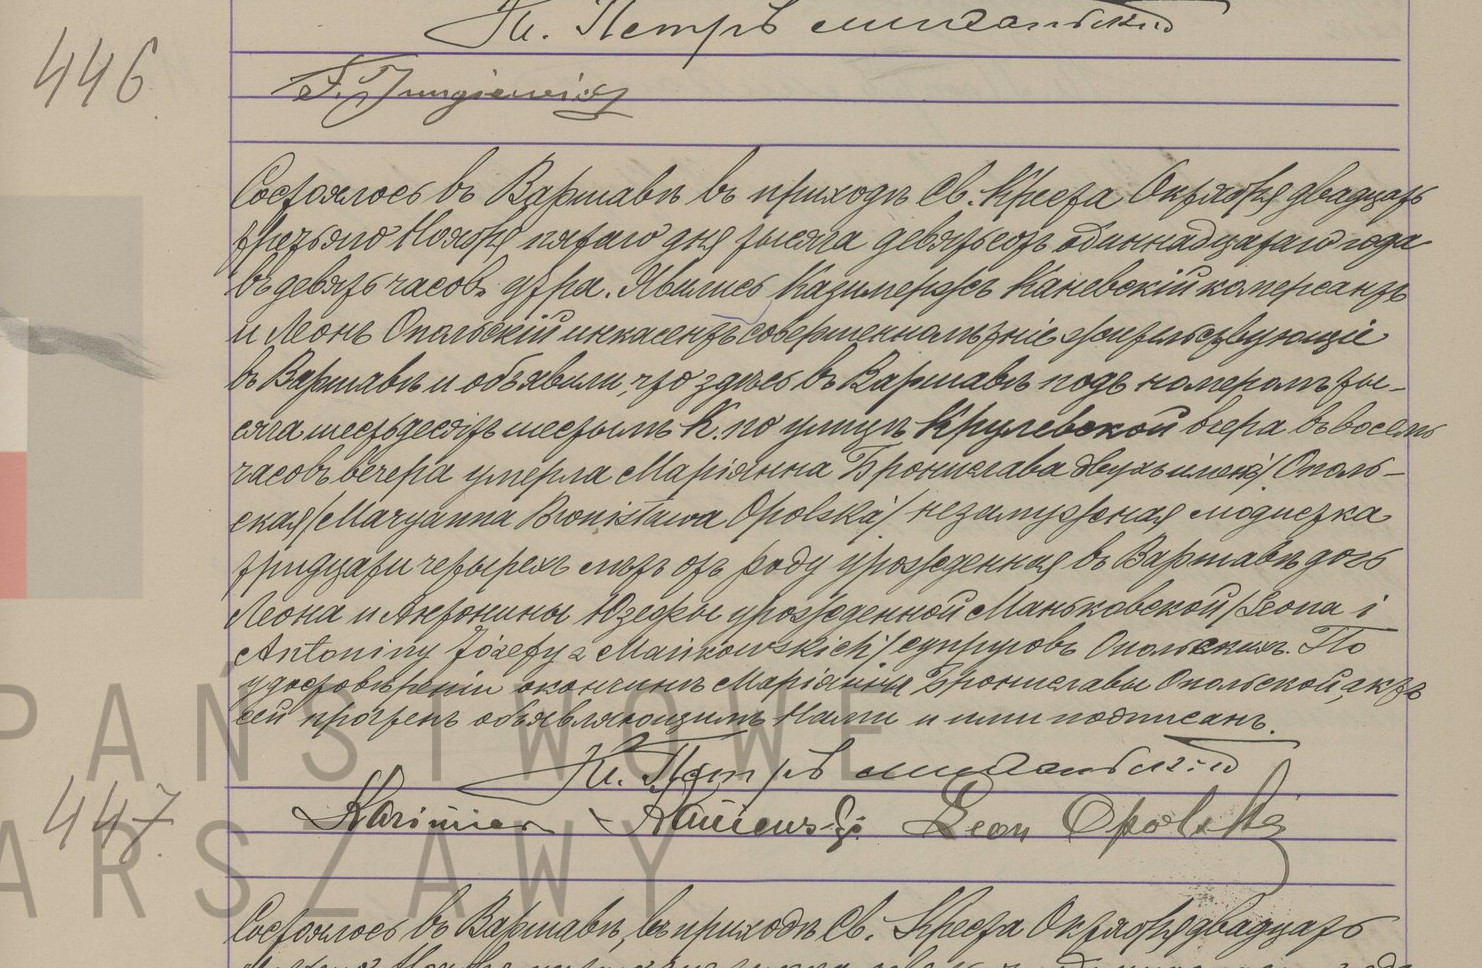 Кс. Петръ
446
Состоялось въ Варшавѣ въ приходѣ Св. Креста Октября двадцать
третьяго Ноября пятаго дня тысяча девятьсотъ одиннадцатаго года
въ девять часовъ утра. Явились Казимержъ Каневскій комерсантъ
и Леонъ Опольскій инкасентъ совершеннолѣтніе жительствующіе
въ Варшавѣ и объявили, что здѣсь въ Варшавѣ подъ номеромъ ты-
сяча шестьдесятъ шестымъ К. по улицѣ Крулевской вчера въ восемь
часовъ вечера умерла Маріянна Бронислава двухъ именъ/ Ополь-
ская /Maryanna Bronisława Opolska/ незамужная модистка
тридцати четырехъ лѣтъ отъ роду урожденная въ Варшавѣ дочь
Леона и Антонины Юзефы урожденной Маньковской /Leona i
Antoniny Józefy z Mańkowskich/ супруговъ Опольскихъ. По
удостовѣреніи кончины Маріянны Брониславы Опольской, актъ
сей прочтенъ объявляющимъ Нами и ими подписанъ.
Кс. Петръ
PAŃSTWOWE
447
Kazimierz Kaniewski Leon Opolski
ARSZAWY
Состоялось въ Варшавѣ, въ приходѣ Св. Креста Октября двадцать